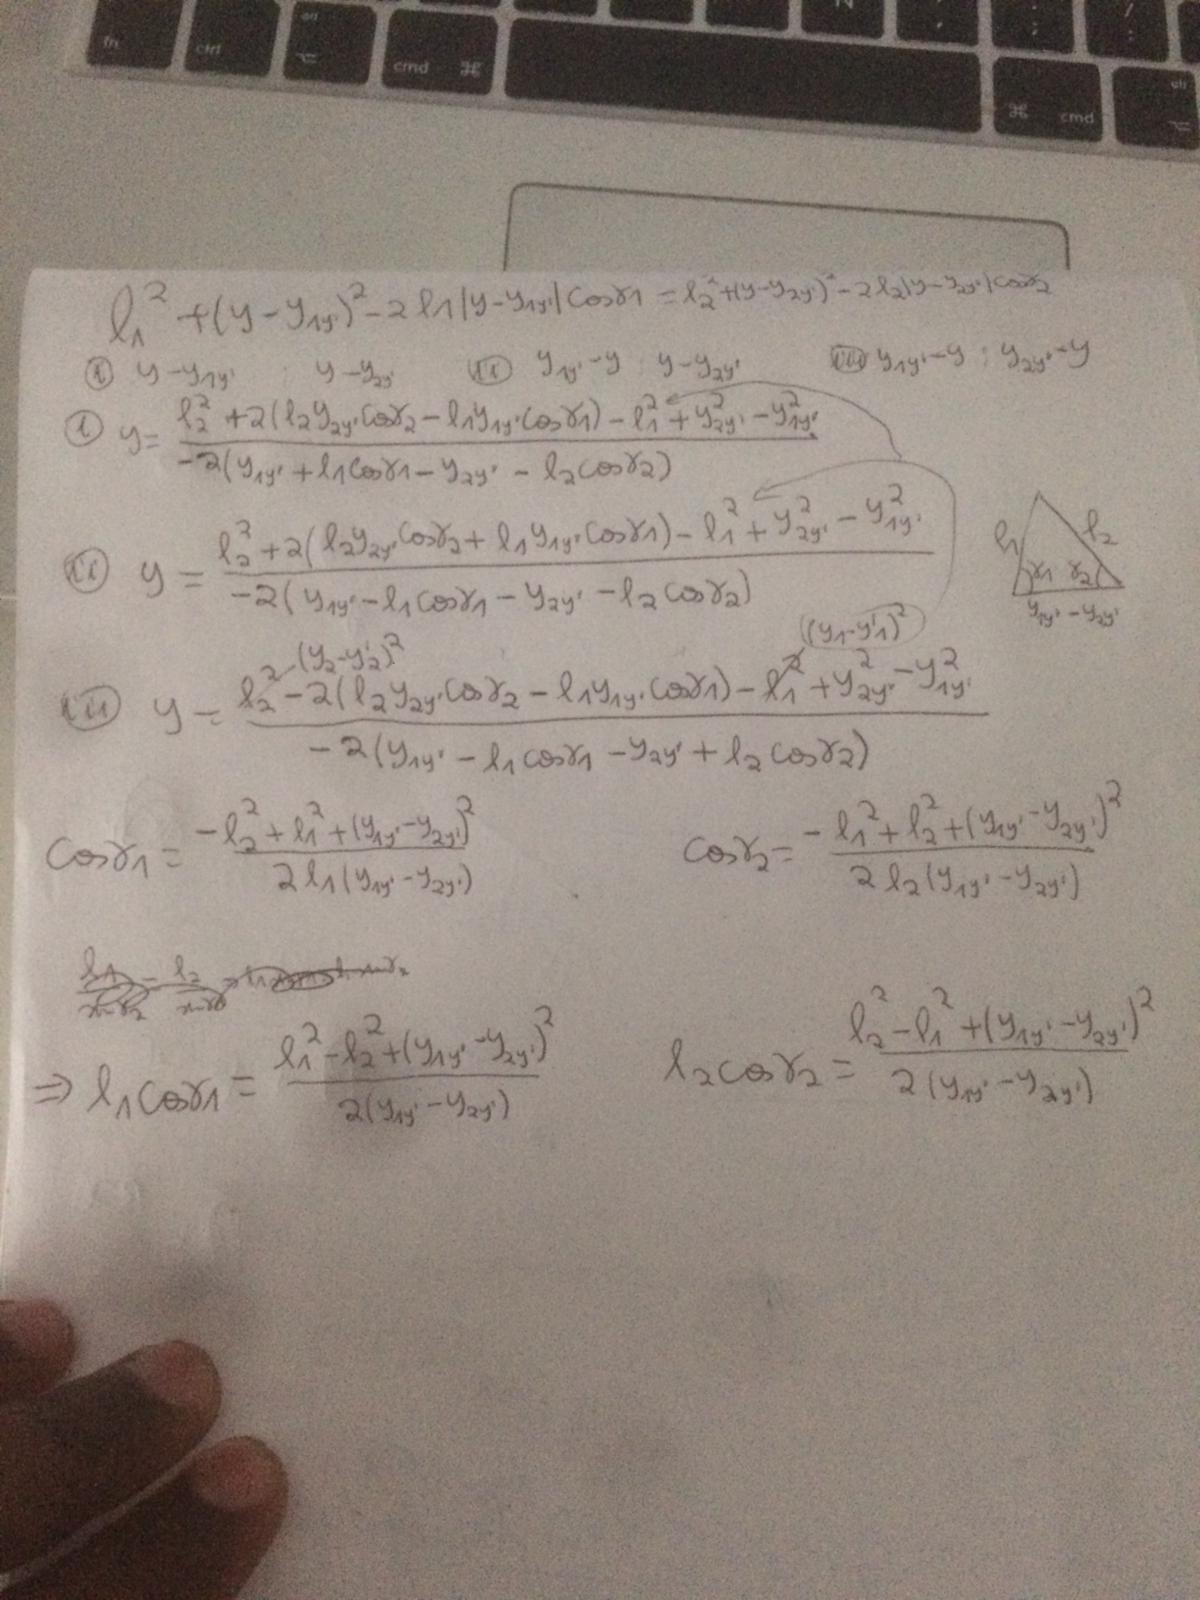 fn ctrl alt ⌥ cmd ⌘ ⌘ cmd alt ⌥
l₁² + (y − y₁y')² − 2 l₁ |y − y₁y'| cosγ₁ = l₂² + (y − y₂y')² − 2 l₂ |y − y₂y'| cosγ₂
(i) y − y₁y' : y − y₂y' (ii) y₁y' − y : y − y₂y' (iii) y₁y' − y : y₂y' − y
(i) y = (l₂² + 2(l₂y₂y' cosγ₂ − l₁y₁y' cosγ₁) − l₁² + y₂y'² − y₁y'²) / (−2(y₁y' + l₁cosγ₁ − y₂y' − l₂cosγ₂))
(ii) y = (l₂² + 2(l₂y₂y' cosγ₂ + l₁y₁y' cosγ₁) − l₁² + y₂y'² − y₁y'²) / (−2(y₁y' − l₁cosγ₁ − y₂y' − l₂cosγ₂))
l₁ l₂
γ₁ γ₂
y₁y' − y₂y'
(y₂−y'₂)² (y₁−y'₁)²
(iii) y = (l₂² − 2(l₂y₂y' cosγ₂ − l₁y₁y' cosγ₁) − l₁² + y₂y'² − y₁y'²) / (−2(y₁y' − l₁cosγ₁ − y₂y' + l₂cosγ₂))
cosγ₁ = (−l₂² + l₁² + (y₁y' − y₂y')²) / (2 l₁(y₁y' − y₂y'))
cosγ₂ = (−l₁² + l₂² + (y₁y' − y₂y')²) / (2 l₂(y₁y' − y₂y'))
⇒ l₁cosγ₁ = (l₁² − l₂² + (y₁y' − y₂y')²) / (2(y₁y' − y₂y'))
l₂cosγ₂ = (l₂² − l₁² + (y₁y' − y₂y')²) / (2(y₁y' − y₂y'))